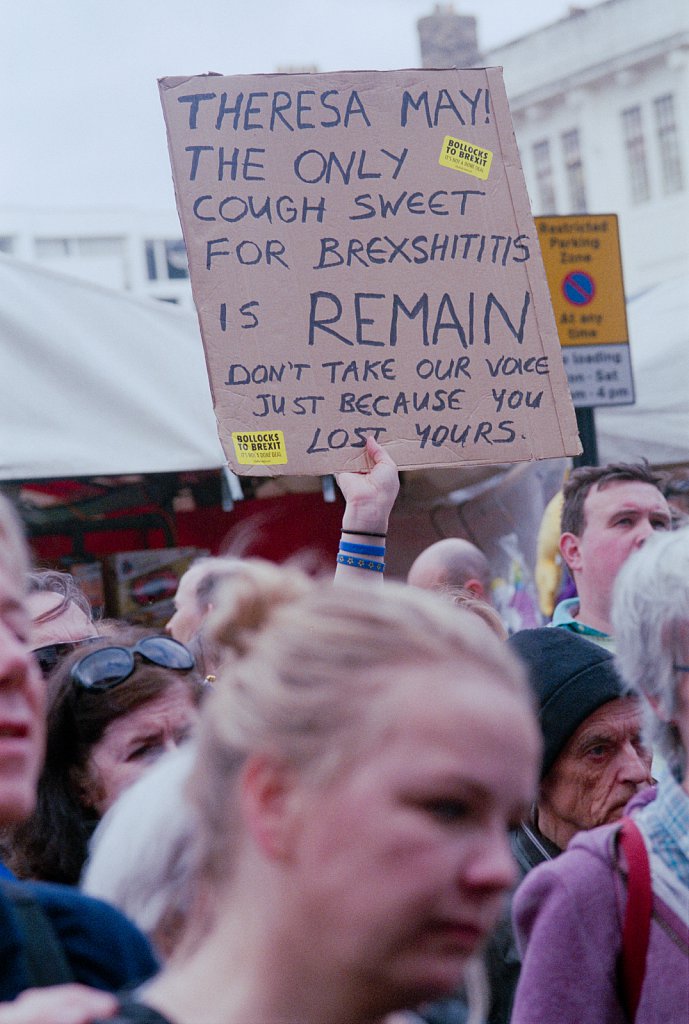 THERESA MAY!
THE ONLY
COUGH SWEET
FOR BREXSHITITIS
IS REMAIN
DON'T TAKE OUR VOICE
JUST BECAUSE YOU
LOST YOURS.
BOLLOCKS
TO BREXIT
IT'S NOT A DONE DEAL
BOLLOCKS
TO BREXIT
IT'S NOT A DONE DEAL
Restricted
Parking
Zone
At any
time
loading
Sat